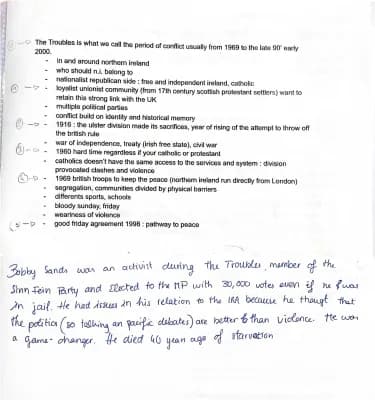 The Troubles is what we call the period of conflict usually from 1969 to the late 90' early
2000.
- in and around northern ireland
- who should n.i. belong to
- nationalist republican side : free and independent ireland, catholic
- loyalist unionist community (from 17th century scottish protestant settlers) want to
retain this strong link with the UK
- multiple political parties
- conflict build on identity and historical memory
- 1916 : the ulster division made its sacrifices, year of rising of the attempt to throw off
the british rule
- war of independence, treaty (irish free state), civil war
- 1960 hard time regardless if your catholic or protestant
- catholics doesn't have the same access to the services and system : division
provocated clashes and violence
- 1969 british troops to keep the peace (northern ireland run directly from London)
- segregation, communities divided by physical barriers
- differents sports, schools
- bloody sunday, friday
- weariness of violence
5 -> - good friday agreement 1998 : pathway to peace
Bobby Sands was an activist during the Troubles, member of the
Sinn Fein Party and Elected to the MP with 30,000 votes even if he was
in jail. He had issues in his relation to the IRA because he thougt that
the politics (so talking an pacific debates) are better than violence. He was
a game-changer. He died 40 years ago of starvation